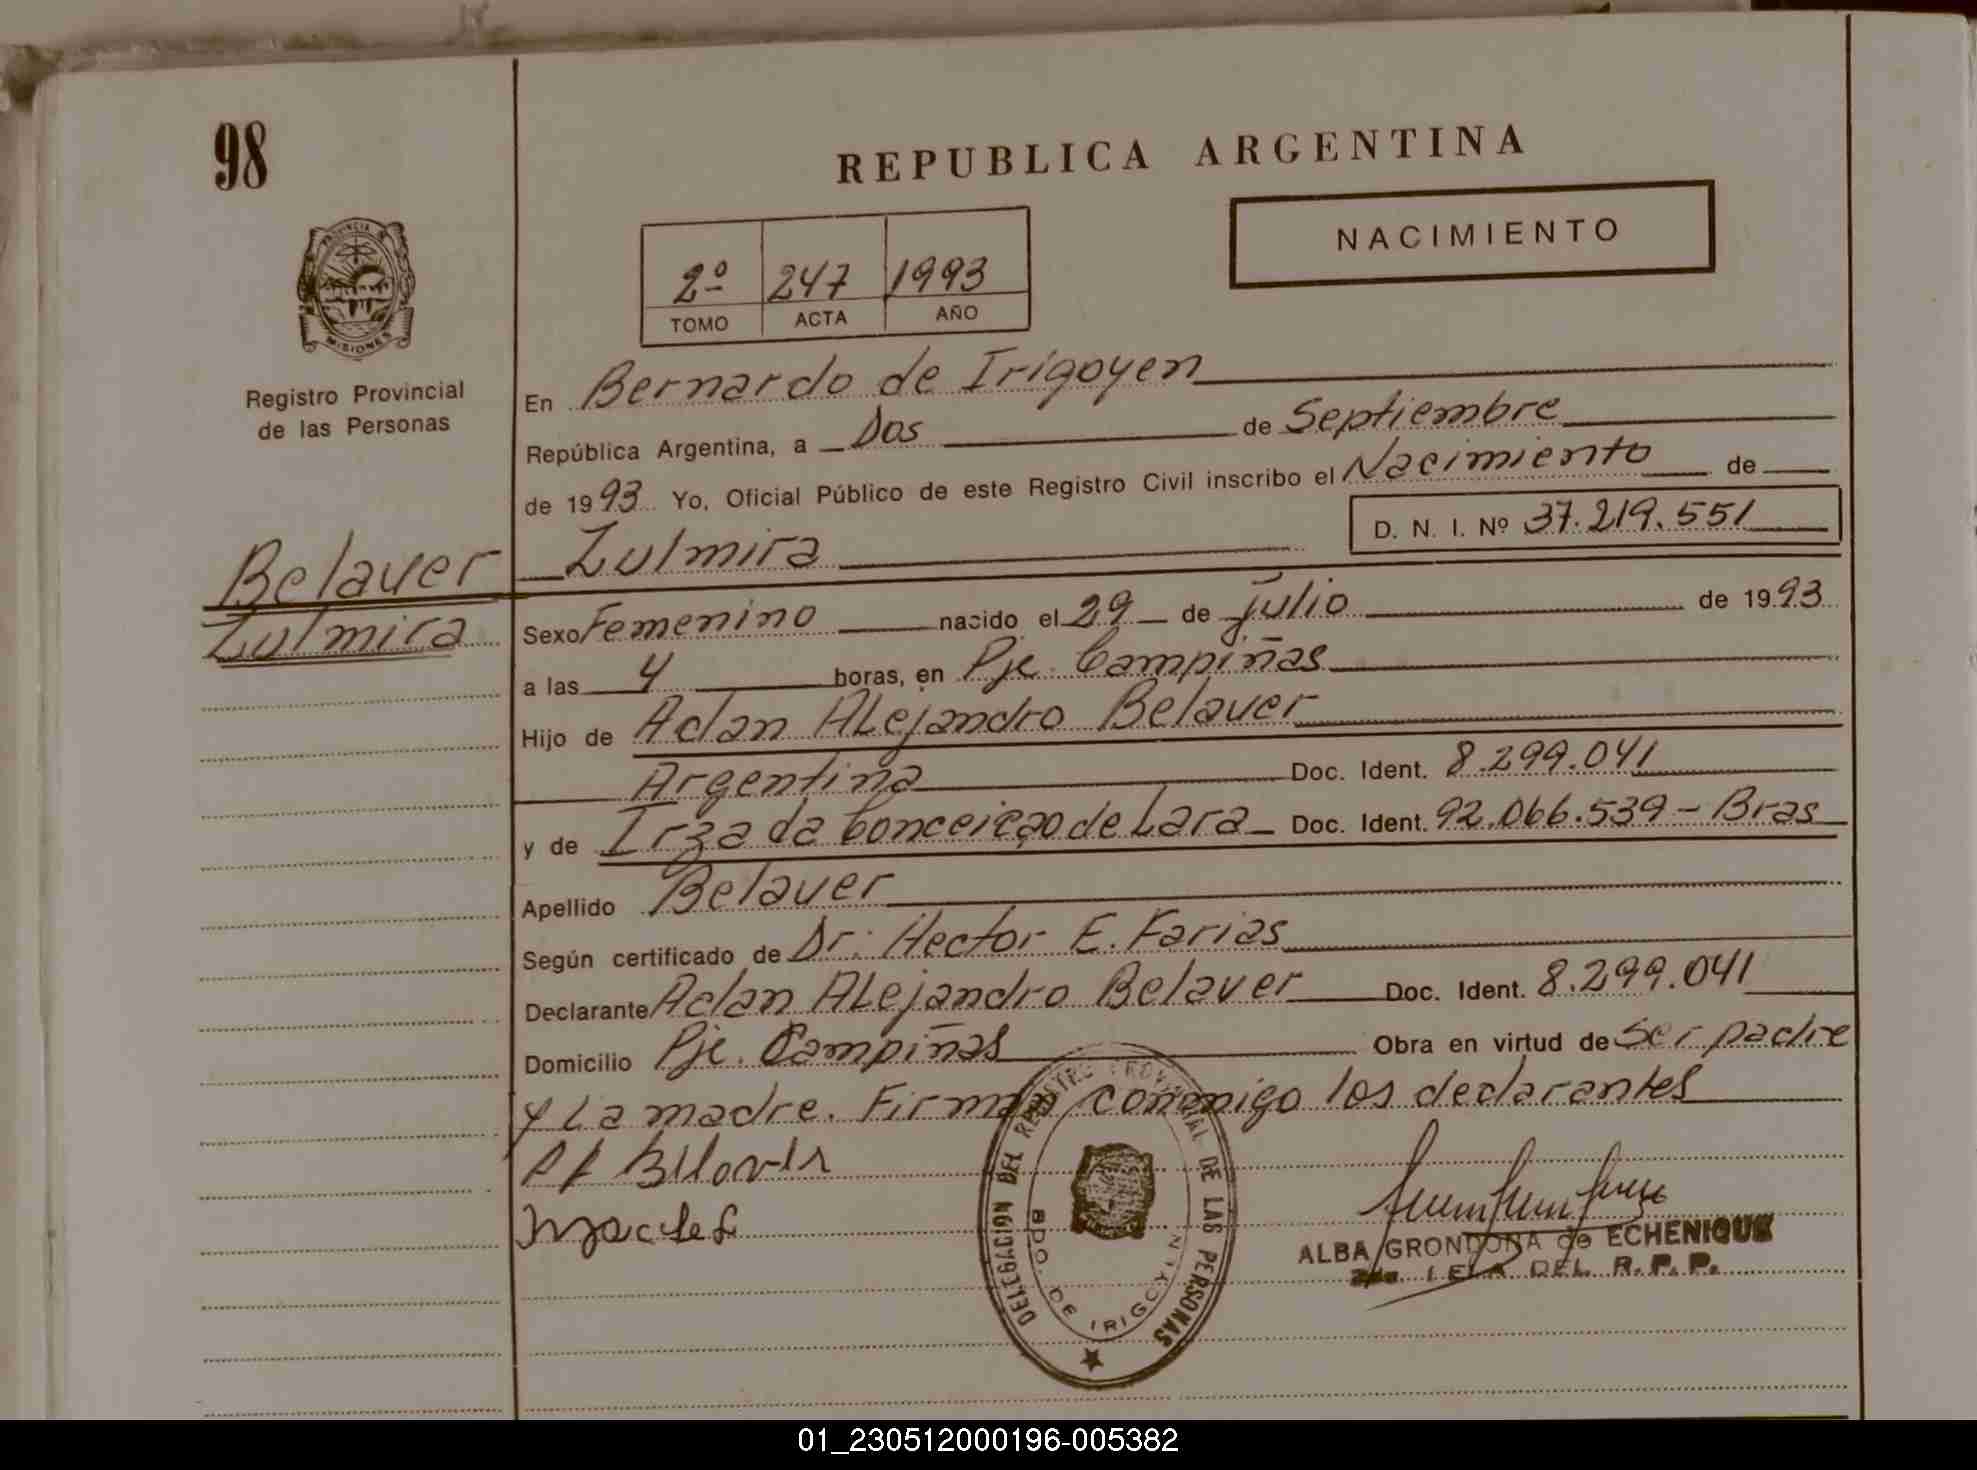 98
REPUBLICA ARGENTINA
NACIMIENTO
2º 247 1993
TOMO ACTA AÑO
PROVINCIA DE
MISIONES
Registro Provincial
de las Personas
En Bernardo de Irigoyen
República Argentina, a Dos de Septiembre
de 1993 Yo, Oficial Público de este Registro Civil inscribo el Nacimiento de
D. N. I. Nº 37.219.551
Belaver Zulmira
Zulmira
Sexo Femenino nacido el 29 de julio de 1993
a las 4 horas, en Pje. Campiñas
Hijo de Adan ALejandro Belaver
Argentina Doc. Ident. 8.299.041
y de Irza da Conceiçao de Lara Doc. Ident. 92.066.539 - Bras
Apellido Belaver
Según certificado de Dr: Hector E. Farias
Declarante Adan ALejandro Belaver Doc. Ident. 8.299.041
Domicilio Pje. Campiñas Obra en virtud de ser padre
y La madre. Firman conmigo los declarantes
DELEGACION DEL REGISTRO PROVINCIAL DE LAS PERSONAS
BDO. DE IRIGOYEN
ALBA GRONDONA de ECHENIQUE
DEL R.P.P.
01_230512000196-005382